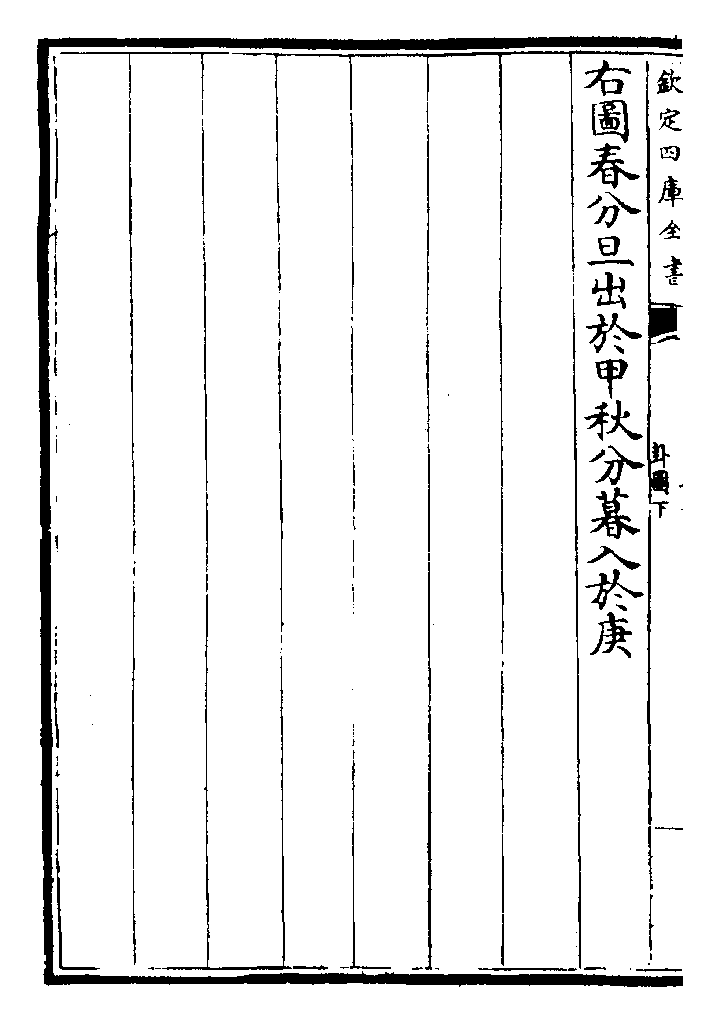 欽定四庫全書
卦圖下
右圖春分旦出於甲秋分暮入於庚